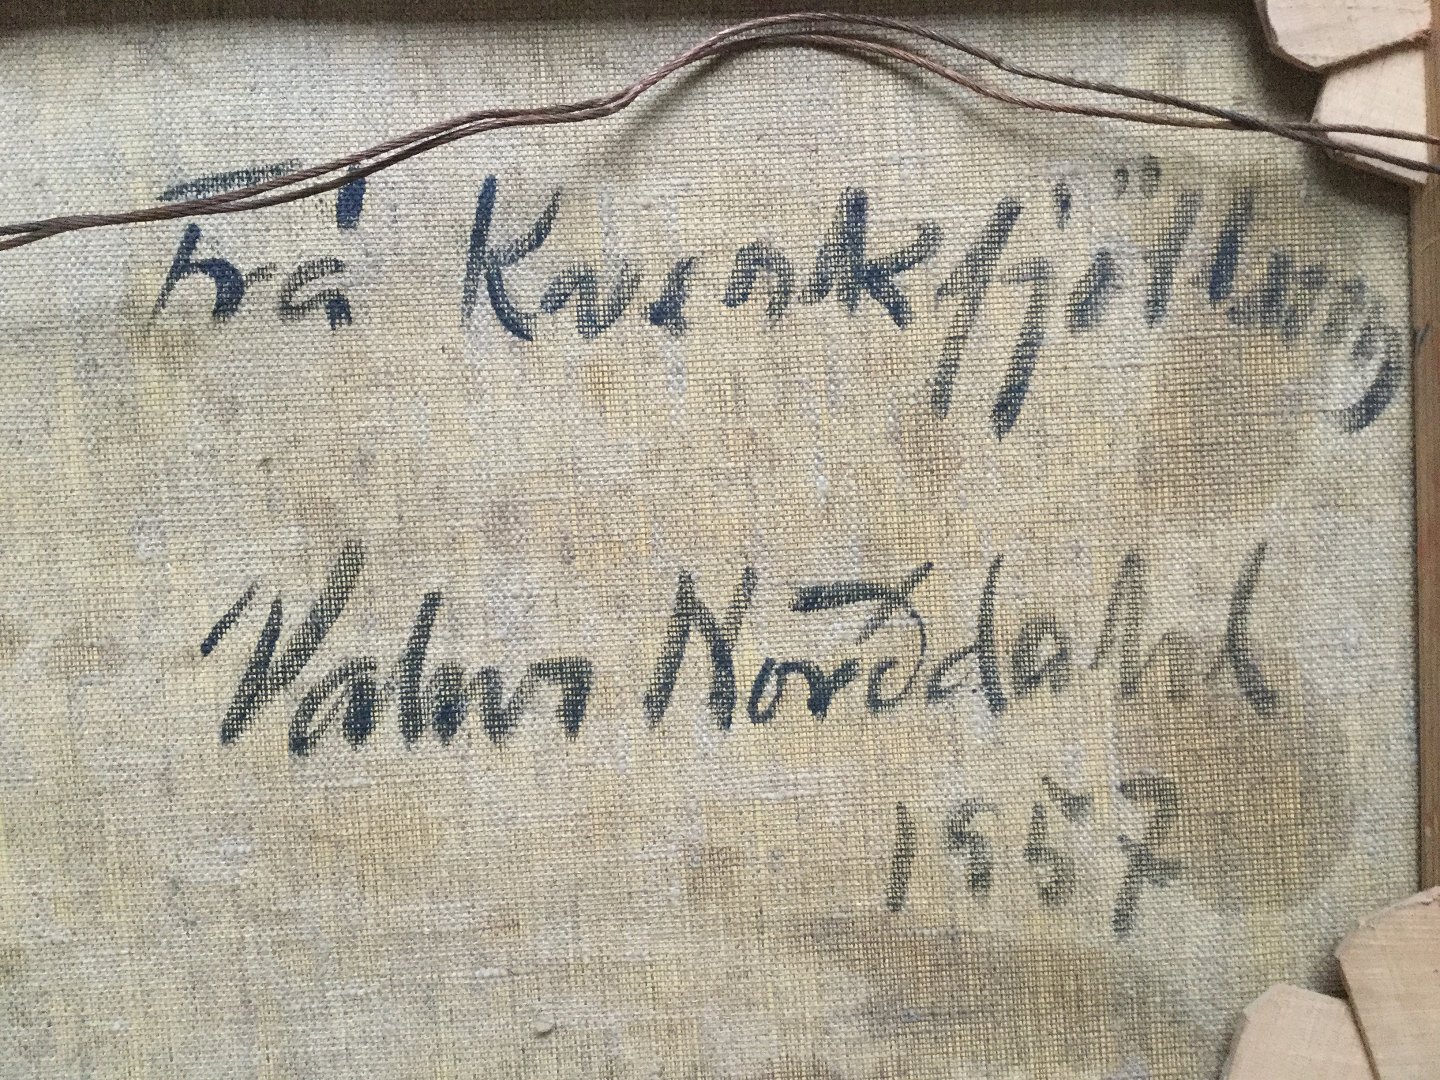 Frá Kverkfjöllum
Valur Norðdahl
1957